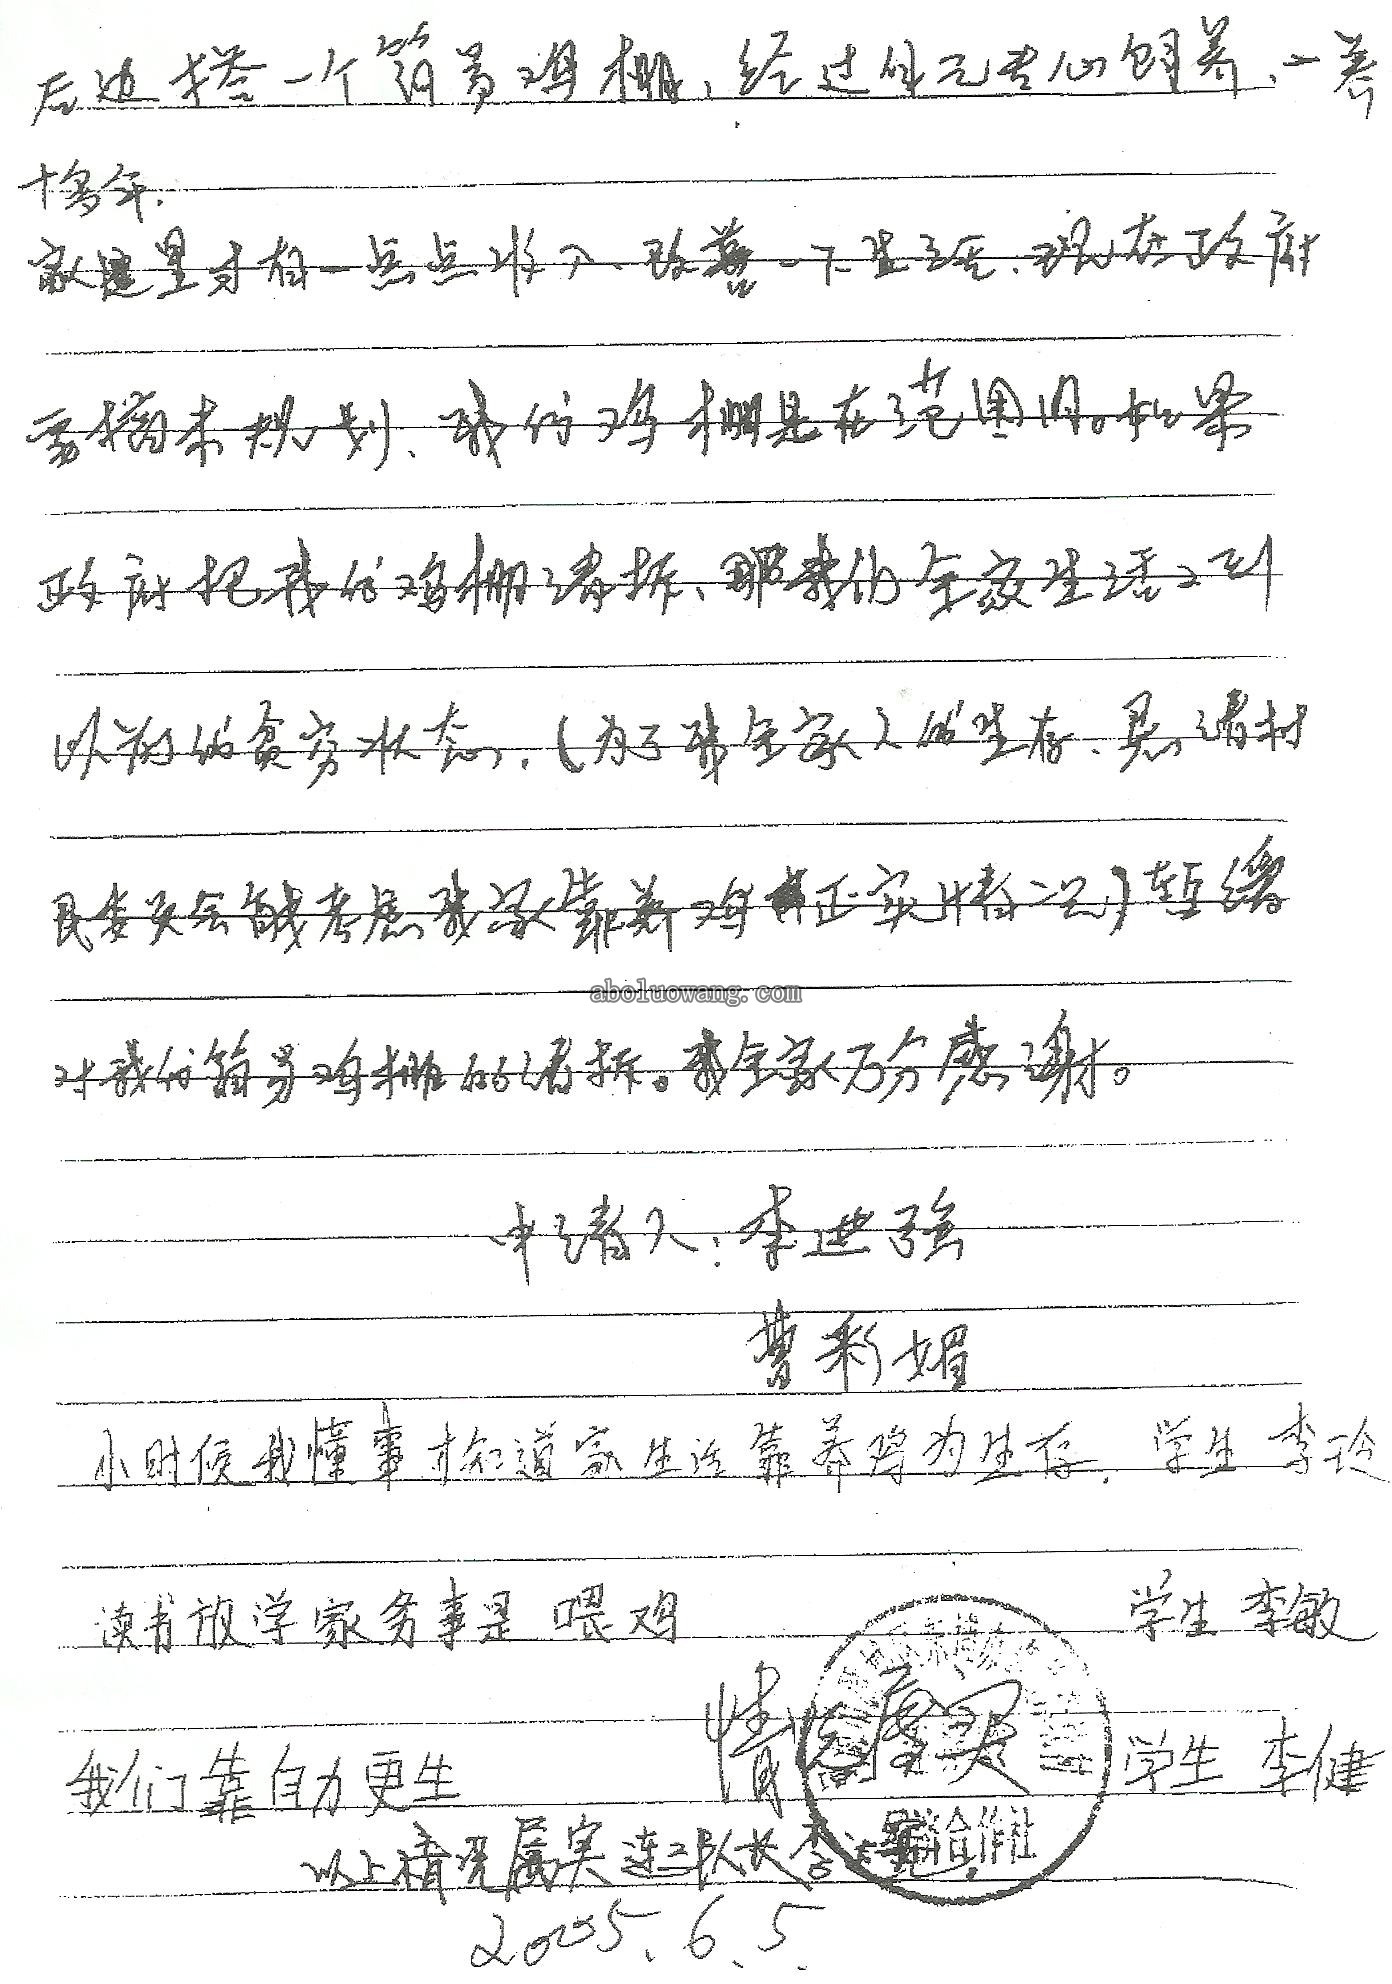 后边搭一个简易鸡棚，经过 专心饲养，一养
十多年.
家里才有一点点收入，改善一下生活，现在政府
要搞来规划，我的鸡棚是在范围内。如果
政府把我的鸡棚清拆，那我们全家生活又到
以前的贫穷状态，(为了我全家人的生存，恳请村
民委员会 考虑我家靠养鸡 正实情况)暂缓
对我的简易鸡棚的清拆。我全家人万分感谢。
申请人：李进强
曹彩媚
小时候我懂事才知道家生活靠养鸡为生存. 学生 李玲
读书放学家务事是 喂鸡 学生 李敏
情况属实
我们靠自力更生 学生 李健
以上情况属实 连二队长李
合作社
2005.6.5
aboluowang.com